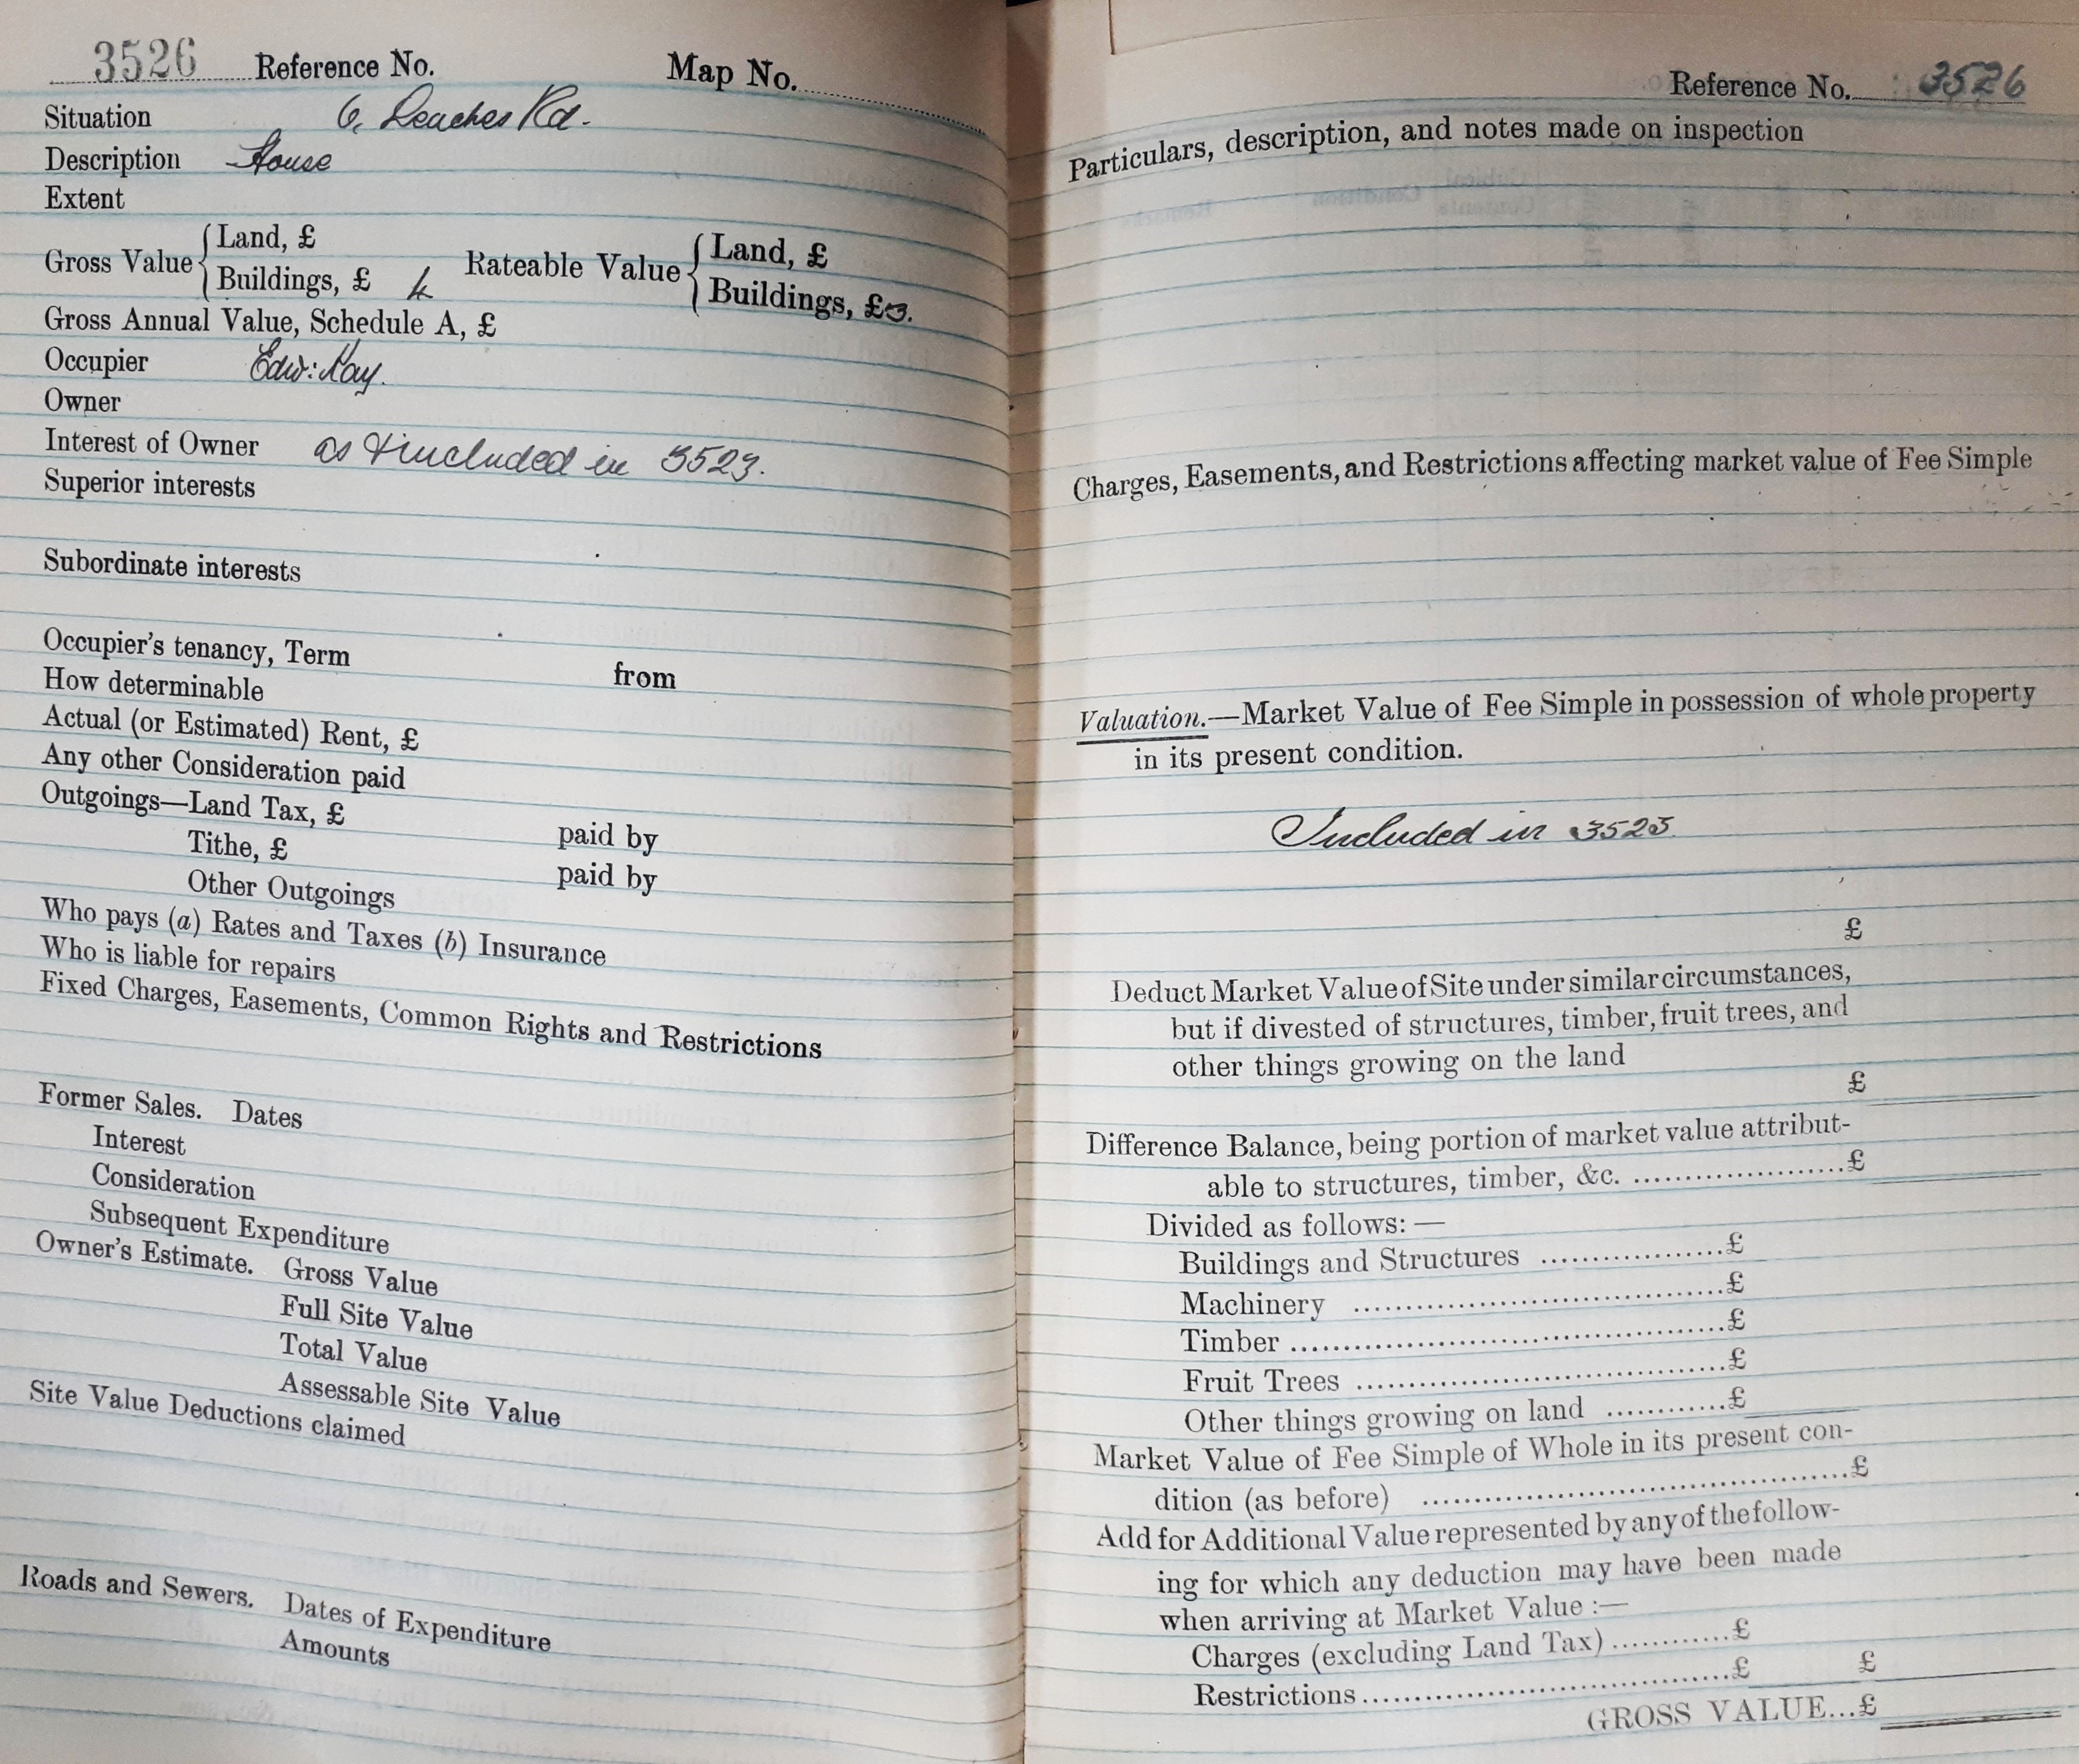 3526 Reference No. Map No.
Situation 6, Leaches Rd.
Description House
Extent
Gross Value { Land, £ Rateable Value { Land, £
Buildings, £ 4 Buildings, £3.
Gross Annual Value, Schedule A, £
Occupier Edw: Kay.
Owner
Interest of Owner as & included in 3523.
Superior interests
Subordinate interests
Occupier's tenancy, Term from
How determinable
Actual (or Estimated) Rent, £
Any other Consideration paid
Outgoings—Land Tax, £ paid by
Tithe, £ paid by
Other Outgoings
Who pays (a) Rates and Taxes (b) Insurance
Who is liable for repairs
Fixed Charges, Easements, Common Rights and Restrictions
Former Sales. Dates
Interest
Consideration
Subsequent Expenditure
Owner's Estimate. Gross Value
Full Site Value
Total Value
Assessable Site Value
Site Value Deductions claimed
Roads and Sewers. Dates of Expenditure
Amounts
Reference No. 3526
Particulars, description, and notes made on inspection
Charges, Easements, and Restrictions affecting market value of Fee Simple
Valuation.—Market Value of Fee Simple in possession of whole property
in its present condition.
Included in 3523
£
Deduct Market Value of Site under similar circumstances,
but if divested of structures, timber, fruit trees, and
other things growing on the land
£
Difference Balance, being portion of market value attribut-
able to structures, timber, &c. ....................£
Divided as follows:—
Buildings and Structures ..................£
Machinery ....................................£
Timber ..........................................£
Fruit Trees ....................................£
Other things growing on land ............£
Market Value of Fee Simple of Whole in its present con-
dition (as before) ..........................................£
Add for Additional Value represented by any of the follow-
ing for which any deduction may have been made
when arriving at Market Value :—
Charges (excluding Land Tax) ............£
Restrictions....................................£ £
GROSS VALUE...£